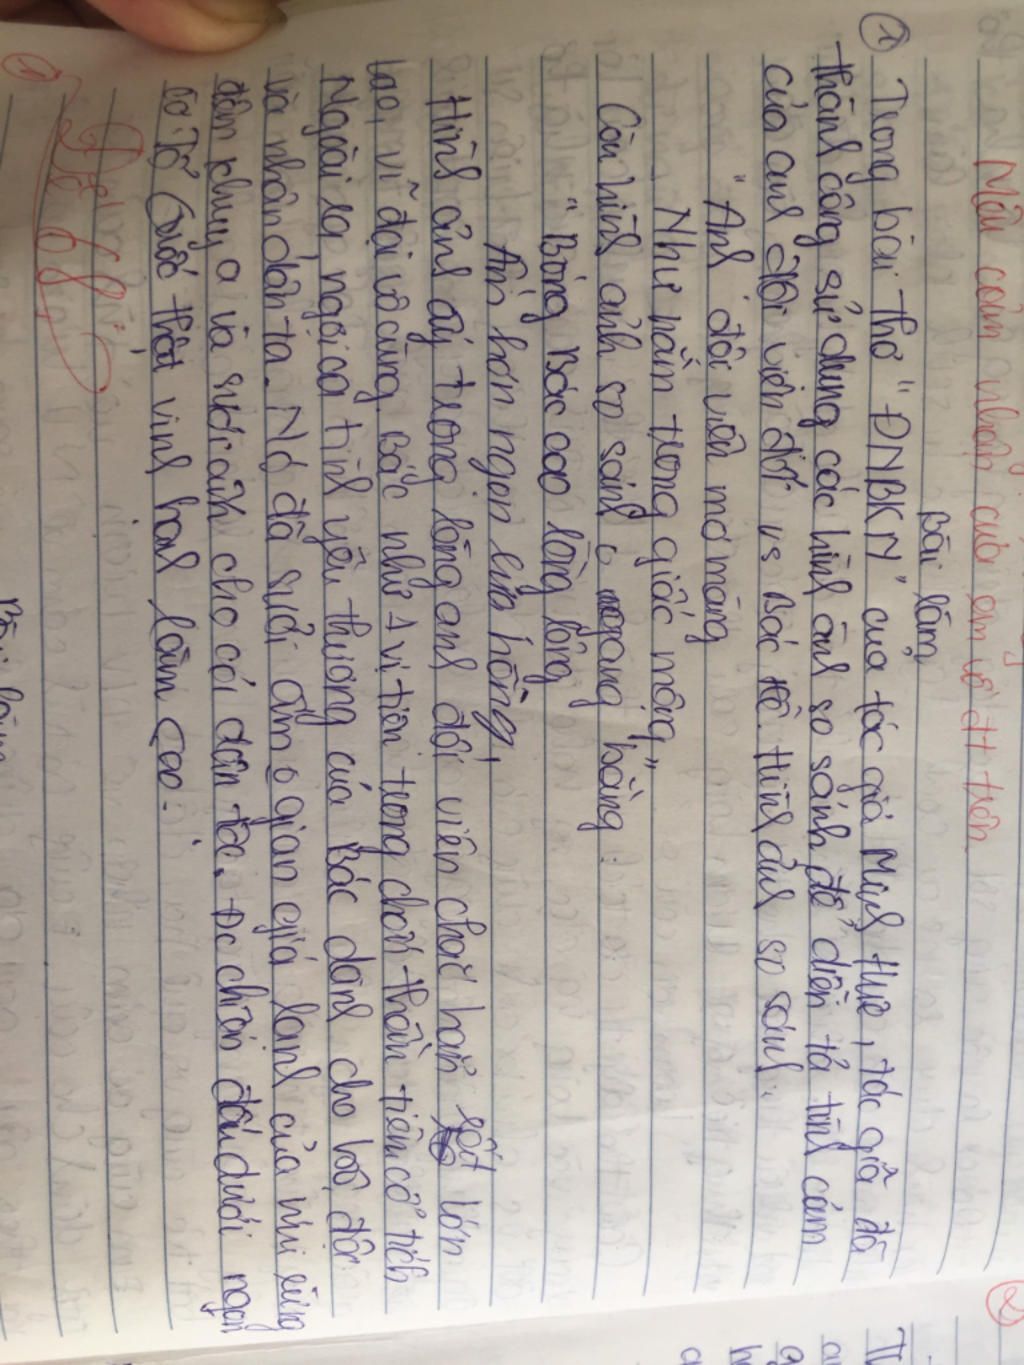 Nêu cảm nhận của em về đt trên
Bài làm
① Trong bài thơ "ĐNBKN" của tác giả Minh Huệ, tác giả đã
thành công sử dụng các hình ảnh so sánh để diễn tả tình cảm
của anh đội viên đối vs Bác Hồ. Hình ảnh so sánh:
"Anh đội viên mơ màng
Như nằm trong giấc mộng"
Còn hình ảnh so sánh o ngang bằng:
"Bóng Bác cao lồng lộng
Ấm hơn ngọn lửa hồng"
Hình ảnh ấy trong lòng anh đội viên chắc hẳn rất lớn
lao, vĩ đại vô cùng, Bác như 1 vị tiên trong thần tiên cổ tích
Ngoài ra, ngợi ca tình yêu thương của Bác dành cho bộ đội
và nhân dân ta. Nó đã sưởi ấm o gian giá lạnh của núi rừng
đêm khuya và sưởi ấm cho cả dân tộc. Đc chiến đấu dưới ngọn
cờ Tổ Quốc thật vinh hạnh làm sao.
①
Đề
②
Bài làm